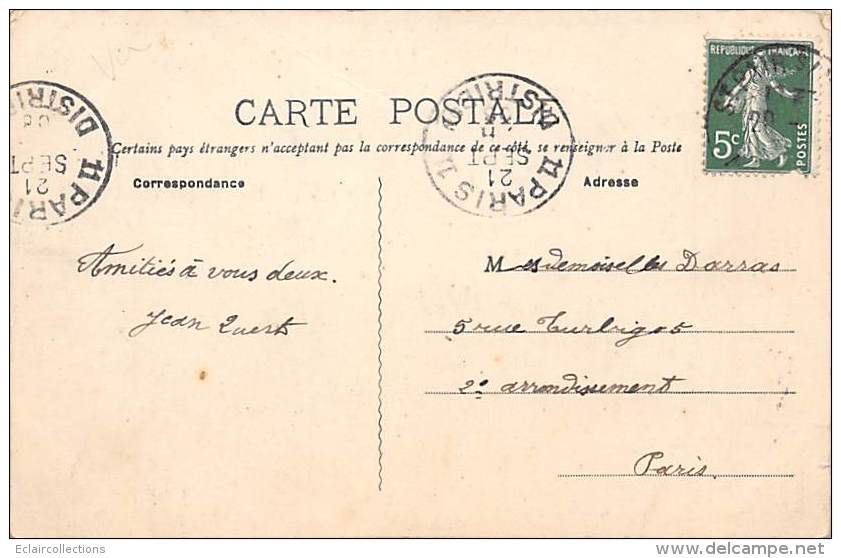 REPUBLIQUE FRANÇAISE
5c
POSTES
CARTE POSTALE
Certains pays étrangers n'acceptent pas la correspondance de ce côté, se renseigner à la Poste
Correspondance
Adresse
PARIS 11
DISTRIB
21
SEPT
PARI
11
DISTRI
21
SEPT
08
Amitiés à vous deux.
Jean
Mesdemoiselles Darras
5 rue Turbigo 5
2e arrondissement
Paris.
Eclaircollections
delcampe.net